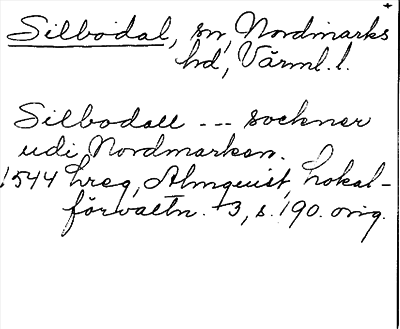 Silbodal, sn, Nordmarks
hd, Värml. l.
Silbodall --- sockner
udi Nordmarken.
1544 hreg, Almquist, Lokal-
förvaltn. 3, s. 190. orig.